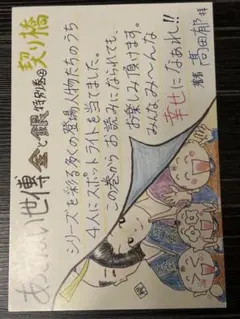 あきない世傳 金と銀 特別巻㊤ 契り橋
シリーズを彩る多くの登場人物たちのうち
4人にスポットライトを当てました。
この巻からお読みになられても、
お楽しみ頂けます。
みんな、み〜んな
幸せになあれ!!
髙田郁 拝